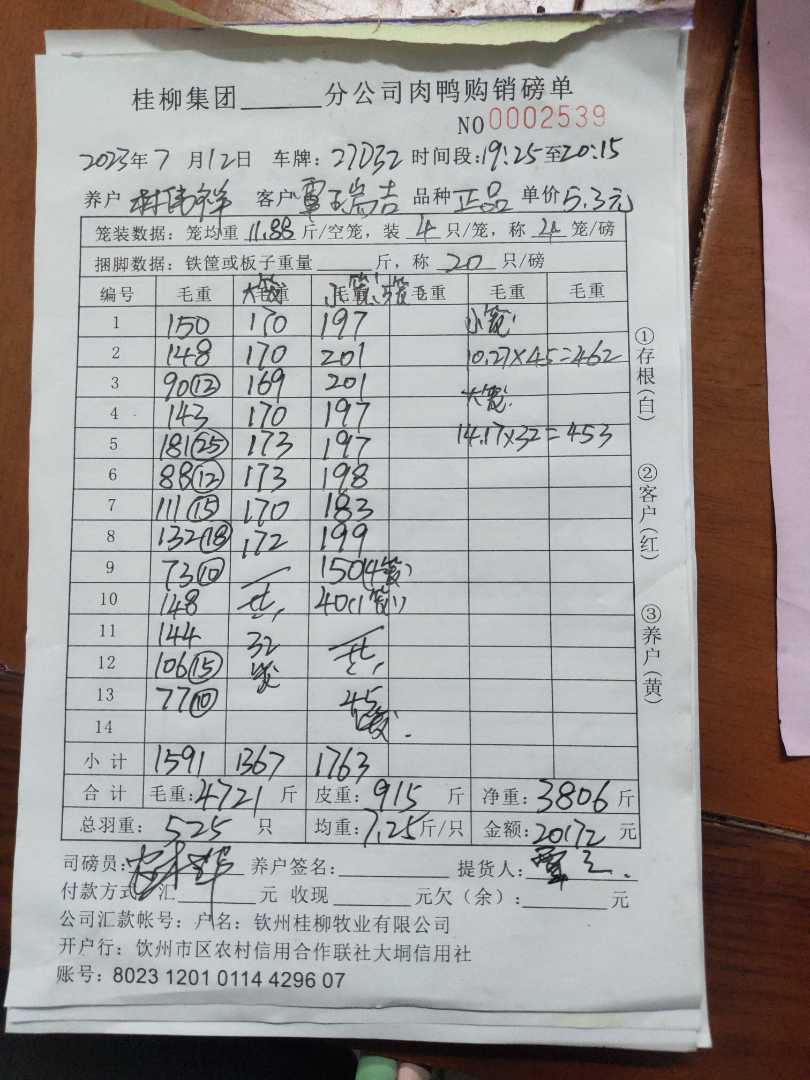 桂柳集团______分公司肉鸭购销磅单
NO 0002539
2023年7月12日 车牌:27D32 时间段:19:25至20:15
养户 林伟祥 客户 覃瑞吉 品种 正品 单价 5.3元
笼装数据:笼均重 11.88 斤/空笼,装 4 只/笼,称 笼/磅
捆脚数据:铁筐或板子重量______斤,称 20 只/磅
编号 毛重 毛重 大笼 毛重 小笼 5笼 毛重 毛重 毛重
1 150 170 197 小笼:
2 148 170 201 10.27×45=462
3 90⑫ 169 201 大笼:
4 143 170 197
5 181㉕ 173 197 14.17×32=453
6 88⑫ 173 198
7 111⑮ 170 183
8 132⑱ 172 199
9 73⑩ 150(4笼)
10 148 共 40(1笼)
11 144 32
12 106⑮ 笼 共
13 77⑩ 45
14 笼
小计 1591 1367 1763
合计 毛重:4721斤 皮重:915斤 净重:3806斤
总羽重:525只 均重:7.25斤/只 金额:20172元
司磅员: 养户签名:______ 提货人:覃
付款方式:汇______元 收现______元欠(余):______元
公司汇款帐号:户名:钦州桂柳牧业有限公司
开户行:饮州市区农村信用合作联社大垌信用社
账号:8023 1201 0114 4296 07
①存根(白)
②客户(红)
③养户(黄)